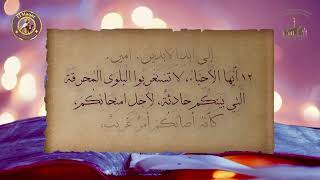 إلى أبد الآبدين. آمين.
١٢ أيها الأحباء، لا تستغربوا البلوى المحرقة
التي بينكم حادثة، لأجل امتحانكم،
كأنه أصابكم أمر غريب،